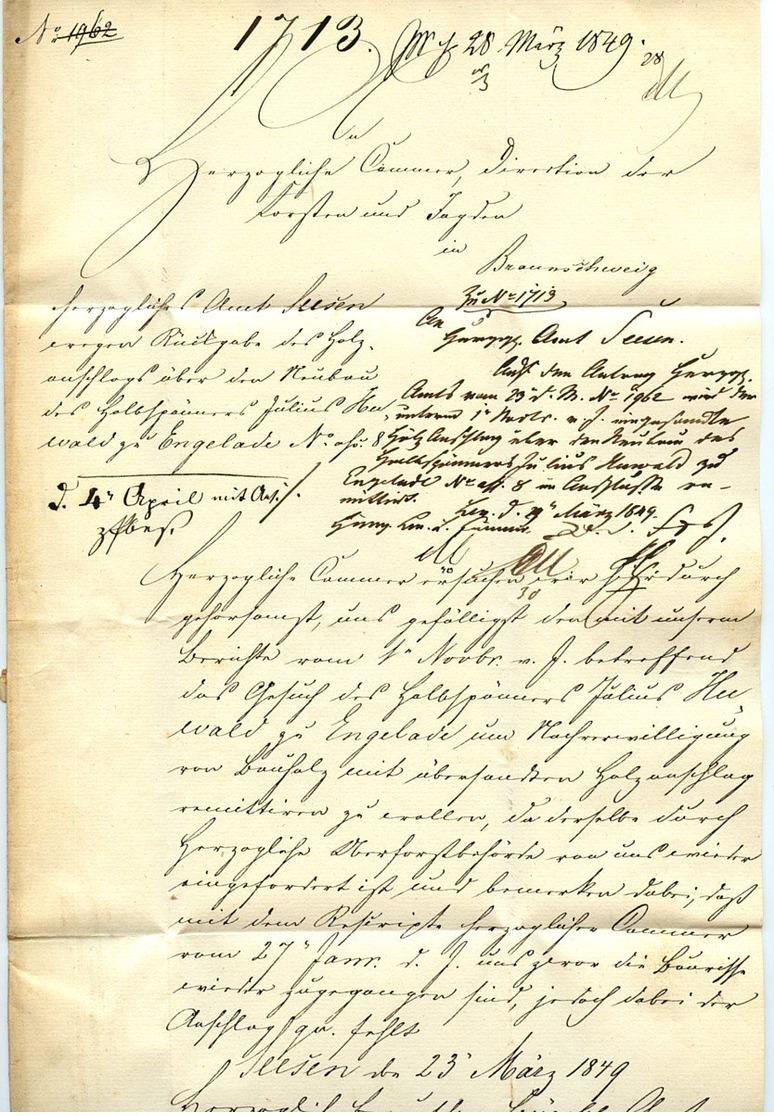 No 1962
1713. 28 März 1849.
28
3
An
Herzogliche Cammer, Direction der
Forsten und Jagden
in
Braunschweig
Herzogliches Amt Seesen
wegen Rückgabe des Holz-
anschlags über den Neubau
des Halbspänners Julius Hu-
wald zu Engelade No. ass. 8
d. 4t April mit Anl.
Zu No 1713
An
Herzogl. Amt Seesen.
Auf den Antrag Herzogl.
Amts vom 23t d. M. No 1962 wird der
unterm 1t Novbr. v. J. eingesandte
Holz Anschlag über den Neubau des
Halbspänners Julius Huwald zu
Engelade No ass. 8 im Anschlusse re-
mittirt.
d. März 1849.
30
Herzogliche Cammer ersuchen wir hierdurch
gehorsamst, uns gefälligst den mit unserm
Berichte vom 1t Novbr. v. J. betreffend
das Gesuch des Halbspänners Julius Hu-
wald zu Engelade um Nachverwilligung
von Bauholz mit übersandten Holzanschlag
remittiren zu wollen, da derselbe durch
Herzogliche Oberforstbehörde von uns wieder
eingefordert ist und bemerken dabei, daß
mit dem Rescripte Herzoglicher Cammer
vom 27t Janr. d. J. uns zwar die Baurisse
wieder zugegangen sind, jedoch dabei der
Anschlag qu. fehlt
Seesen den 23t März 1849